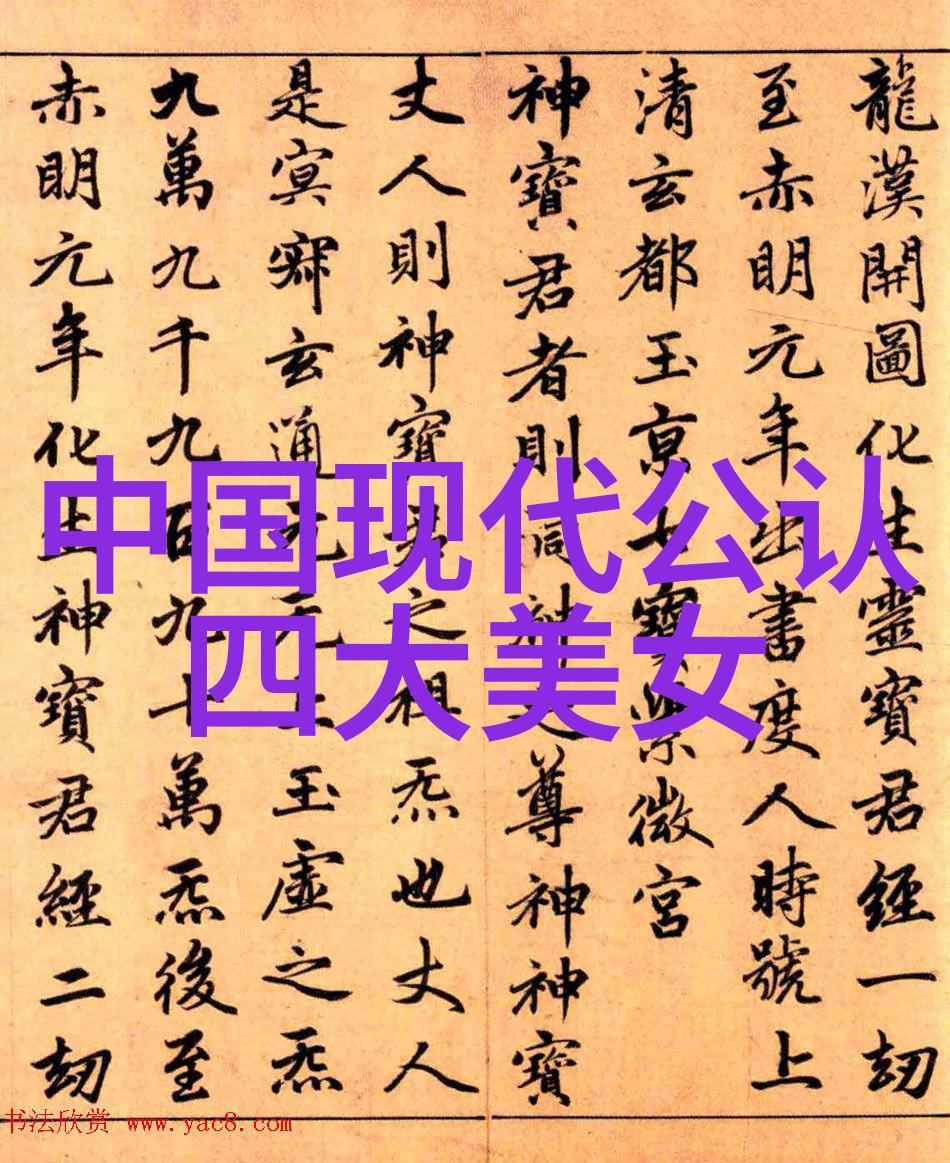 龍漢開圖化生靈寶君經一劫
至赤明元年出書度人時號上
清玄都玉京七寶紫微宮
神寶君者則洞神之尊神神寶
丈人則神寶君之祖炁也丈人
是寘寂玄通元无上玉虛之炁
九萬九千九百九十萬炁後至
赤明元年化生神寶君經二劫
中国现代公认
四大美女
书法欣赏 www.yac8.com